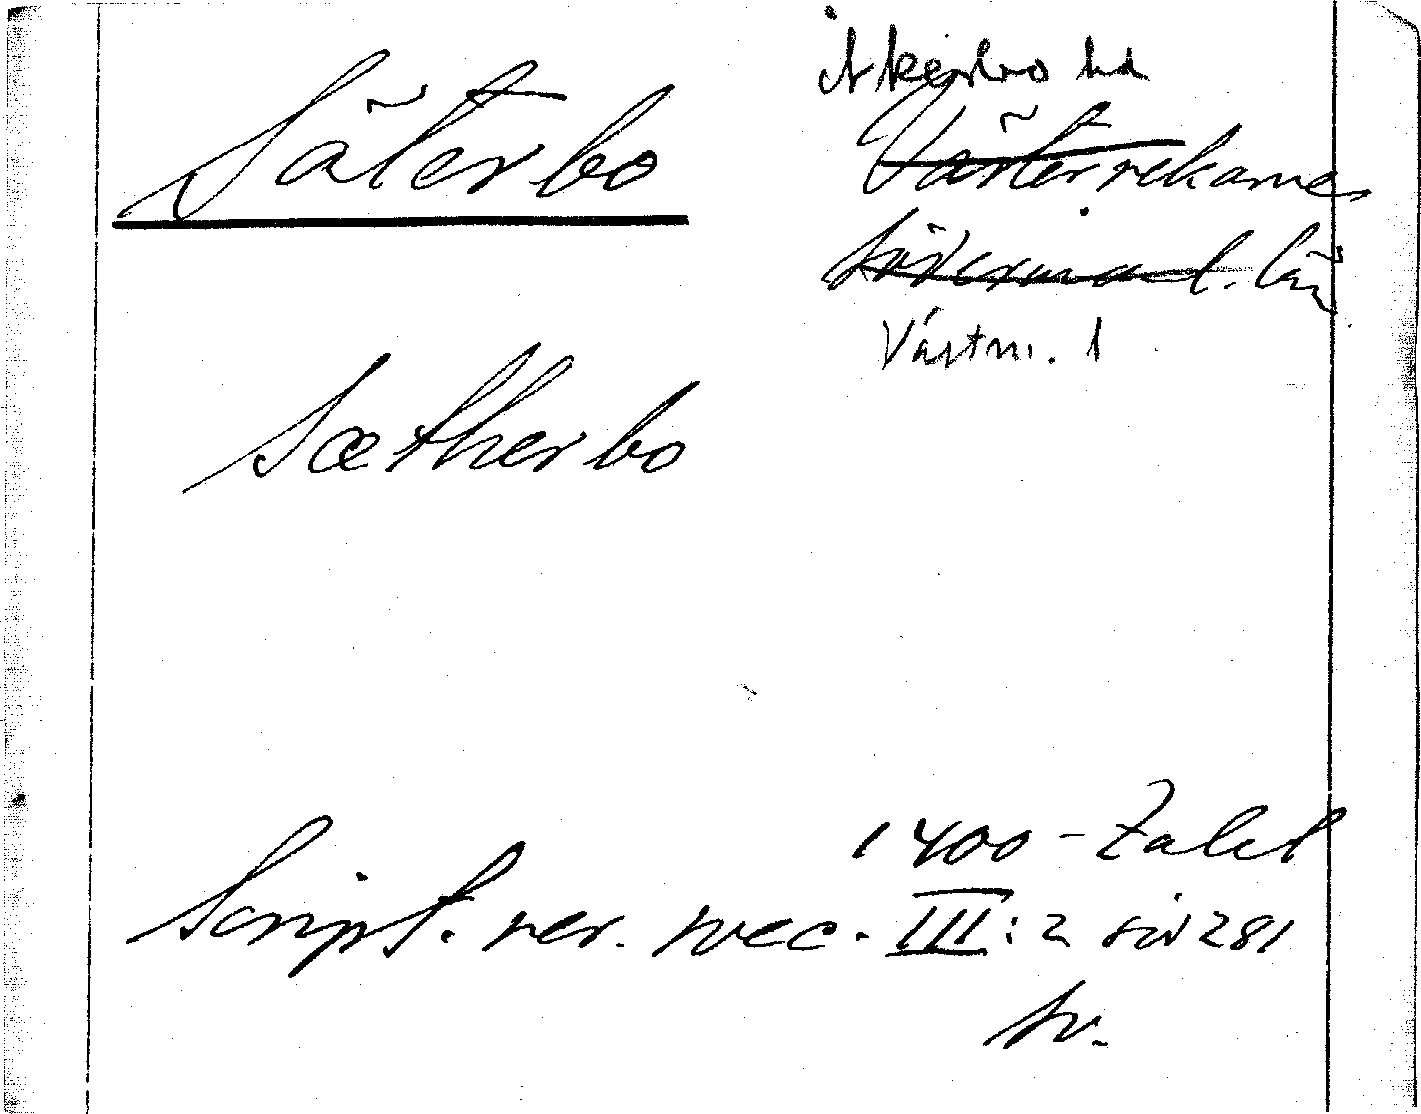 Åkerbo hd
Säterbo
Västerrekarne
Söderman l. län
Västm. l
Sætherbo
1400-talet
Script. rer. svec. III:2 sid 281
sv.